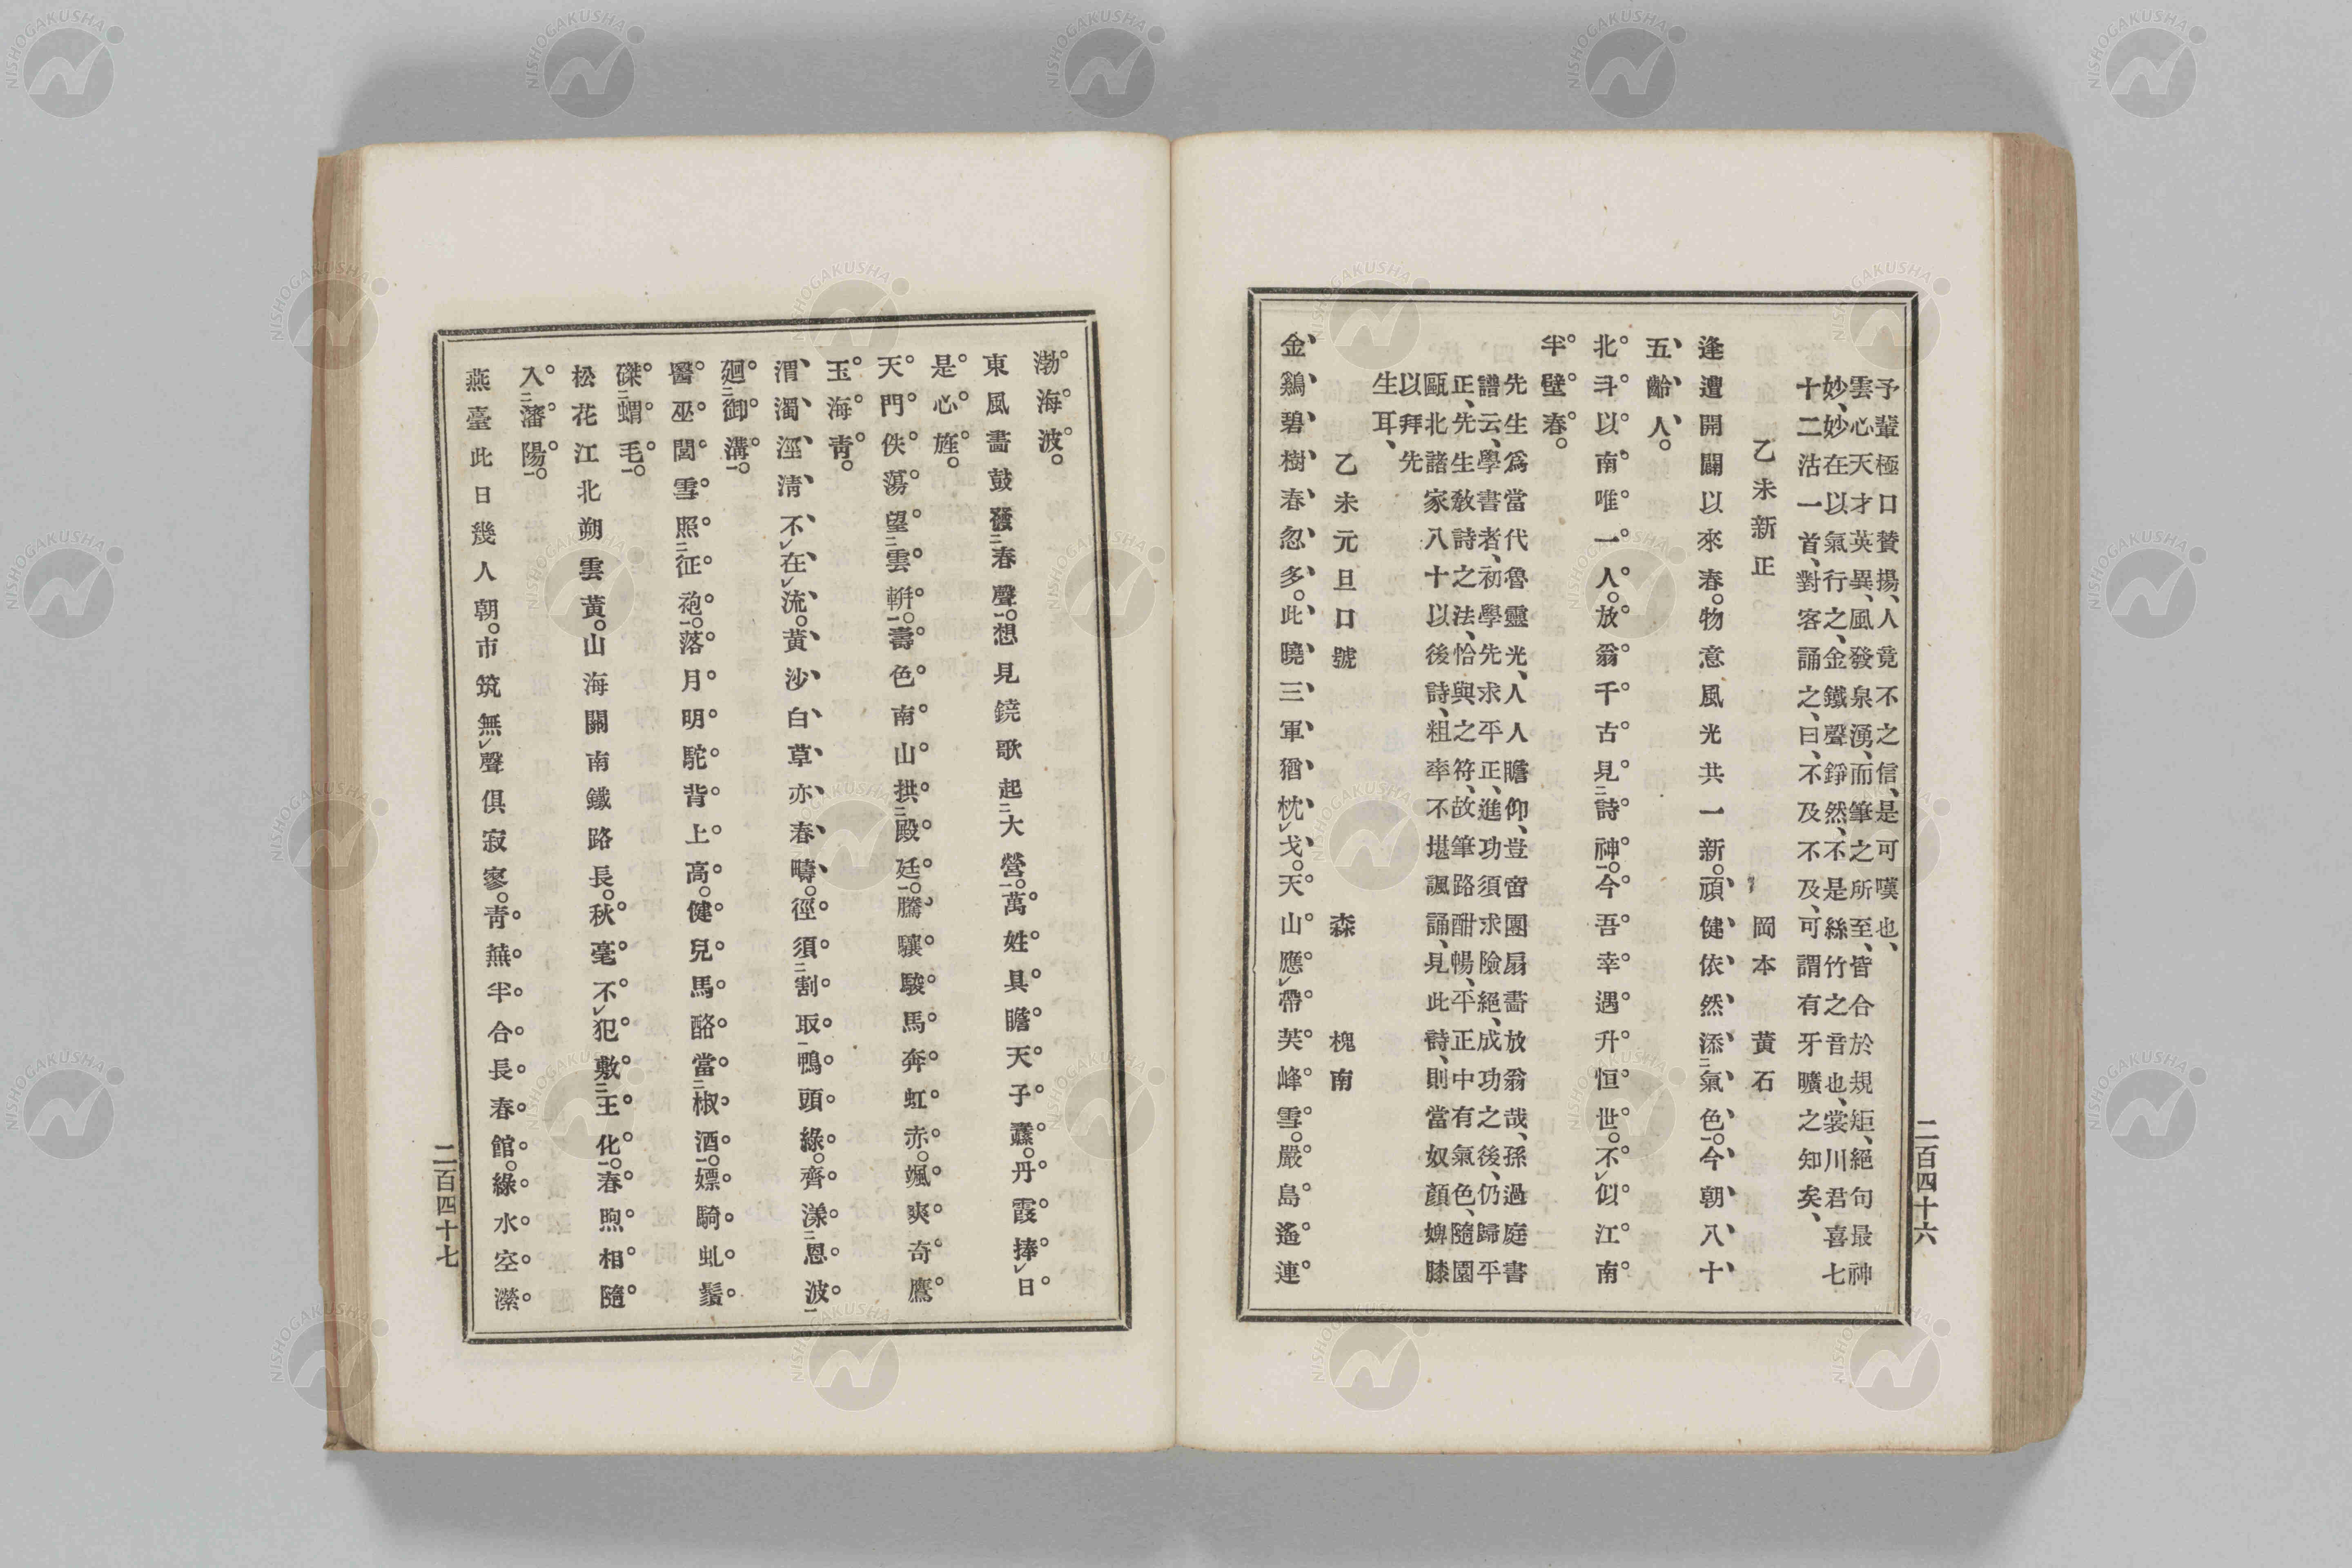 予輩極口贊揚、人竟不之信、是可嘆也、
雲心天才英異、風發泉湧、而筆之所至、皆合於規矩、絕句最神
妙、妙在以氣行之、金鐵聲錚然、不是絲竹之音也、裳川君喜七
十二沽一首、對客誦之、曰、不及不及、可謂有牙曠之知矣、
乙未新正 岡本黃石
逢遭開闢以來春。物意風光共一新。頑健依然添二氣色一。今朝八十
五齡人。
北斗以南唯一人。放翁千古見二詩神一。今吾幸遇升恒世。不レ似江南
半壁春。
先生爲當代魯靈光、人人瞻仰、豈啻團扇畫放翁哉、孫過庭書
譜云、學書者、初學先求平正、進功須求險絕、成功之後、仍歸平
正、先生敎詩之法、恰與之符、故筆路酣暢、平正中有氣色、隨園
甌北諸家八十以後詩、粗率不堪諷誦、見此詩、則當奴顏婢膝
以拜先
生耳、
乙未元旦口號 森槐南
金鷄碧樹春忽多。此曉三軍猶枕レ戈。天山應レ帶芙峰雪。嚴島遙連
二百四十六
渤海波。
東風畫鼓發二春聲一。想見鐃歌起二大營一。萬姓具瞻天子纛。丹霞捧レ日
是心旌。
天門佚蕩望二雲軿一。壽色南山拱二殿廷一。騰驤駿馬奔虹赤。颯爽奇鷹
玉海靑。
渭濁涇淸不レ在レ流。黃沙白草亦春疇。徑須二割取一鴨頭綠。齊漾二恩波一
廻二御溝一。
醫巫閭雪照二征袍一。落月明駝背上高。健兒馬酪當二椒酒一。嫖騎虬鬚
磔二蝟毛一。
松花江北朔雲黃。山海關南鐵路長。秋毫不レ犯敷二王化一。春煦相隨
入二瀋陽一。
燕臺此日幾人朝。市筑無レ聲俱寂寥。靑蕪半合長春館。綠水空瀠
二百四十七
NISHOGAKUSHA